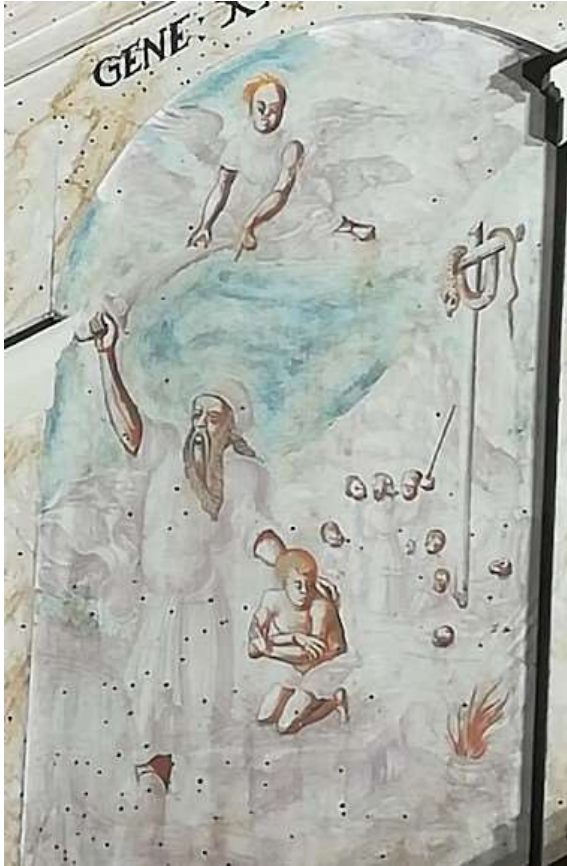 GENE: X